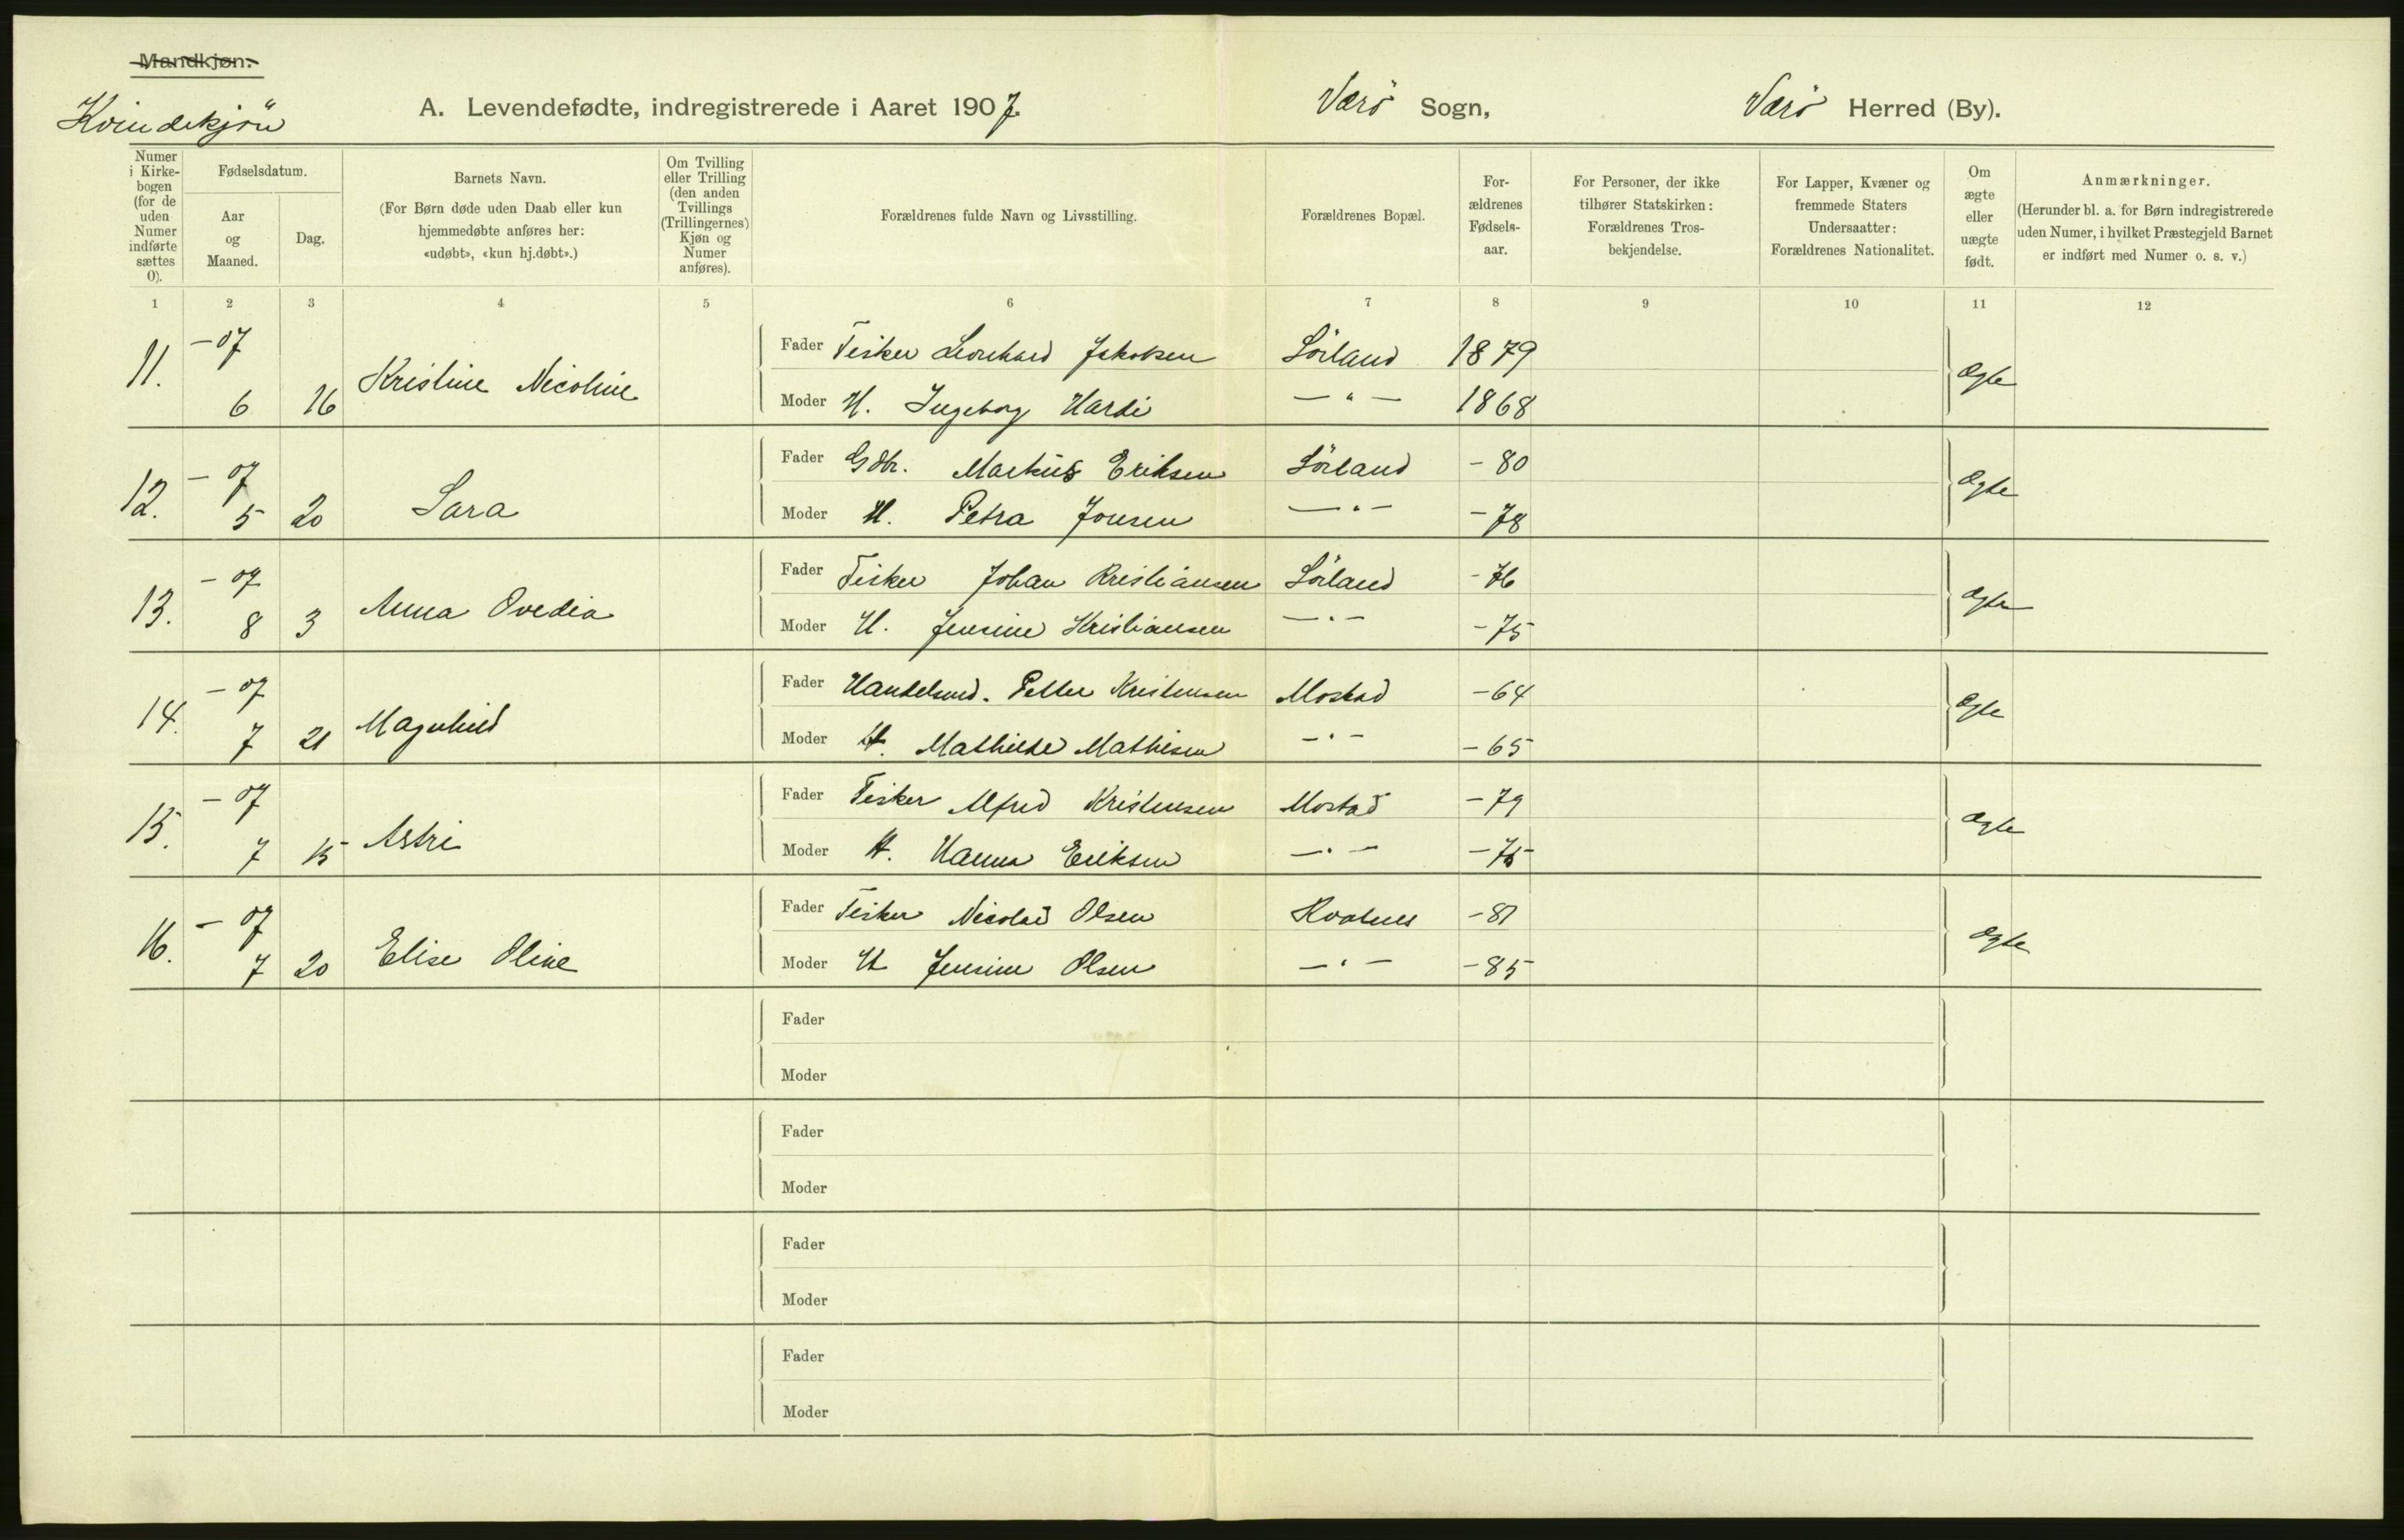 Mandkjøn.
Kvindekjön
A. Levendefødte, indregistrerede i Aaret 1907. Værö Sogn, Værö Herred (By).
Numer i Kirkebogen (for de uden Numer indførte sættes 0).
Fødselsdatum.
Aar og Maaned.
Dag.
Barnets Navn.
(For Børn døde uden Daab eller kun
hjemmedøbte anføres her:
«udøbt», «kun hj.døbt».)
Om Tvilling
eller Trilling
(den anden
Tvillings
(Trillingernes)
Kjøn og
Numer
anføres).
Forældrenes fulde Navn og Livsstilling.
Forældrenes Bopæl.
For-
ældrenes
Fødsels-
aar.
For Personer, der ikke
tilhører Statskirken:
Forældrenes Tros-
bekjendelse.
For Lapper, Kvæner og
fremmede Staters
Undersaatter:
Forældrenes Nationalitet.
Om
ægte
eller
uægte
født.
Anmærkninger.
(Herunder bl. a. for Børn indregistrerede
uden Numer, i hvilket Præstegjeld Barnet
er indført med Numer o. s. v.)
1 2 3 4 5 6 7 8 9 10 11 12
11. -07 6 16 Kristine Nicoline Ægte
Fader Fisker Leonhard Jakobsen Sörland 1879
Moder H. Ingeborg Hardi — " — 1868
12. -07 5 20 Sara Ægte
Fader Gdbr. Markus Eriksen Sörland -80
Moder H. Petra Jonsen — " — -78
13. -07 8 3 Anna Ovedia Ægte
Fader Fisker Johan Kristiansen Sörland -76
Moder H. Jensine Kristiansen — " — -75
14. -07 7 21 Magnhild Ægte
Fader Handelsmd. Petter Kristensen Mostad -64
Moder H. Mathilde Mathisen — " — -65
15. -07 7 15 Astri Ægte
Fader Fisker Alfred Kristensen Mostad -79
Moder H. Hanna Eriksen — " —
16. -07 7 20 Elise Oline Ægte
Fader Fisker Nicolai Olsen Kvalnes -81
Moder H Jensine Olsen — " — -85
Fader
Moder
Fader
Moder
Fader
Moder
Fader
Moder